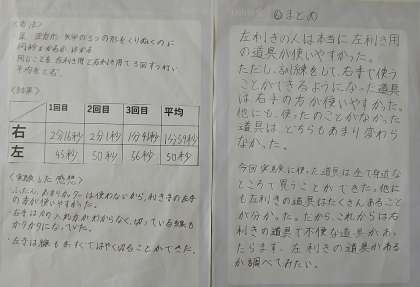 〈方法〉
星、三角形、ひし形の3つの形をくりぬくのに
何秒かかるかはかる
同じことを左利き用と右利き用で3回ずつ行い
平均をとる。
〈結果〉
1回目 2回目 3回目 平均
右 2分16秒 2分1秒 1分41秒 1分59秒
左 45秒 50秒 56秒 50秒
〈実験した感想〉
・ふだん、あまりカッターは使わないから、利き手の左手
の方が使いやすかった。
・右手は力の入れ方がわからなく、切っている線も
ガタガタになっていた。
・左手は線もまっすぐではやく切ることができた。
⑥まとめ
左利きの人は本当に左利き用
の道具が使いやすかった。
ただし、訓練をして、右手で使う
ことができるようになった道具
は右手の方が使いやすかった。
他にも、使ったのことがなかった
道具は、どちらもあまり変わら
なかった。
今回実験に使った道具は全て身近な
ところで買うことができた。他に
も左利きの道具はたくさんあること
が分かった。だから、これからは右利
きの道具で不便な道具があっ
たらまず、左利きの道具がある
か調べてみたい。